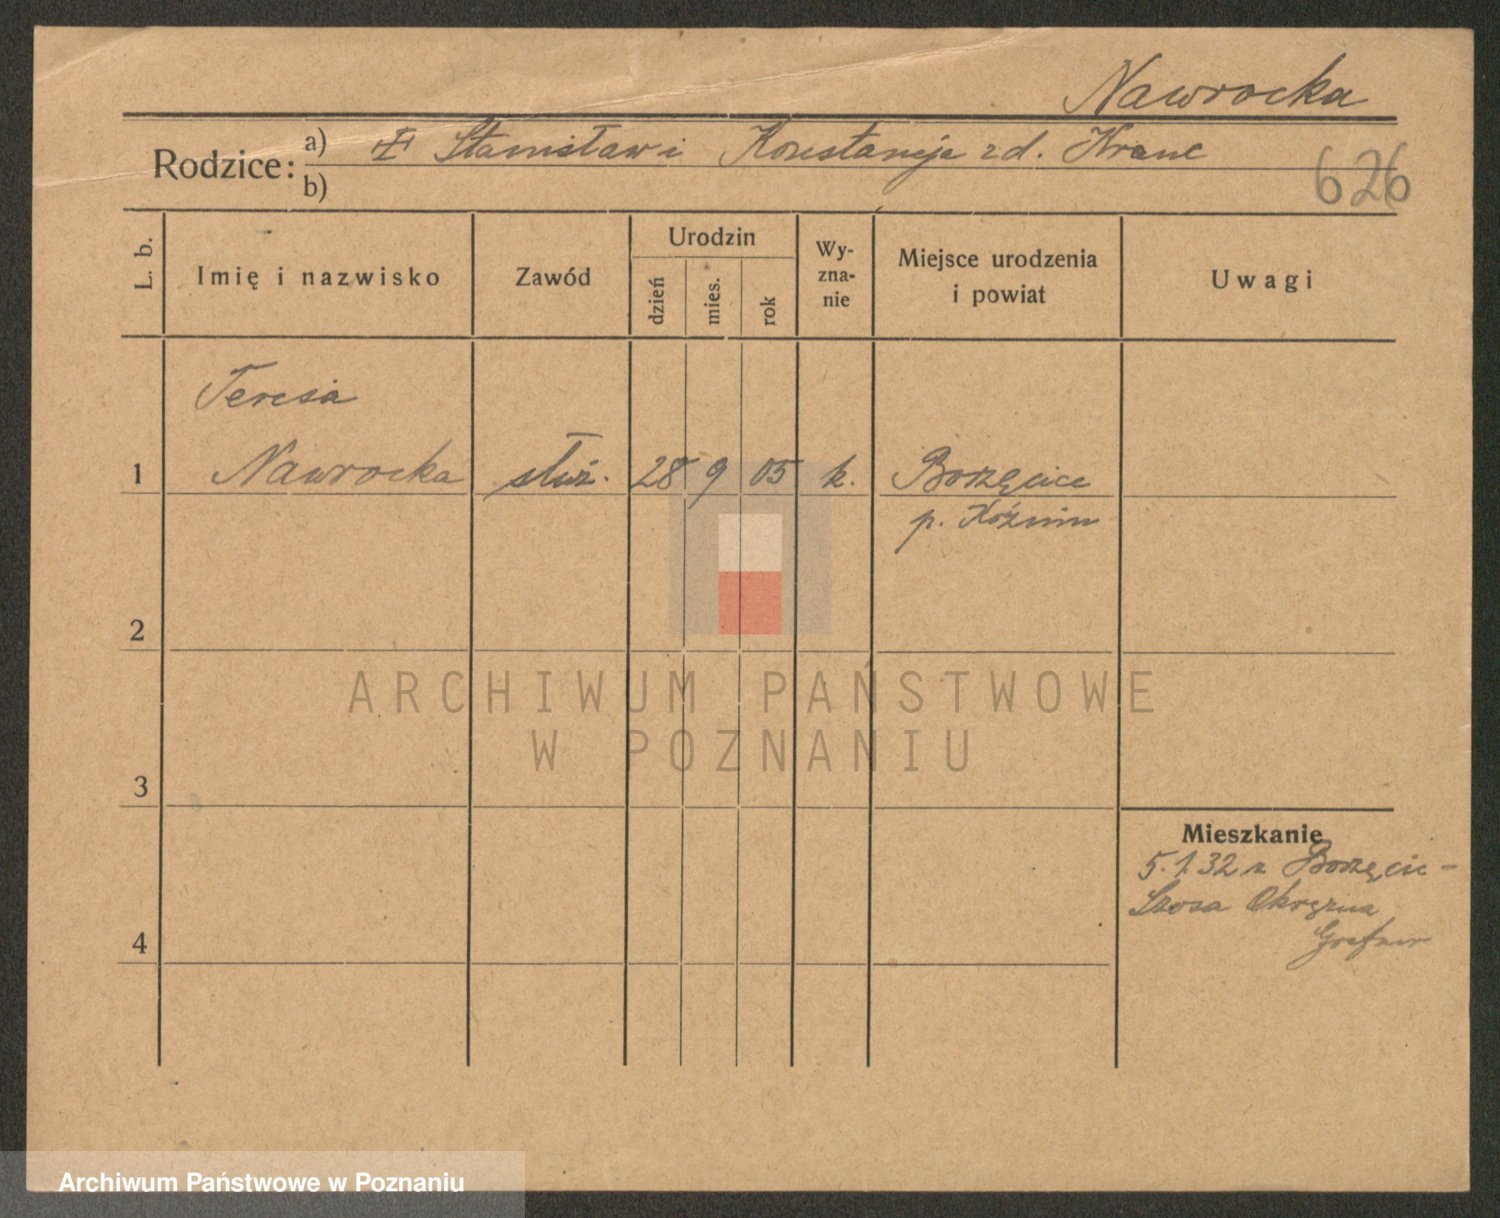 Nawrocka
Rodzice: a) Stanisław i Konstancja z d. Kranc
b)
626
L. b.
Imię i nazwisko
Zawód
Urodzin
dzień
mies.
rok
Wy-
zna-
nie
Miejsce urodzenia
i powiat
Uwagi
Teresa
1 Nawrocka służ. 28 9 05 k. Borzęcice
p. Koźmin
2
3
4
Mieszkanie
5.1.32 z Borzęcic -
Szosa Okrężna
ARCHIWUM PAŃSTWOWE
W POZNANIU
Archiwum Państwowe w Poznaniu